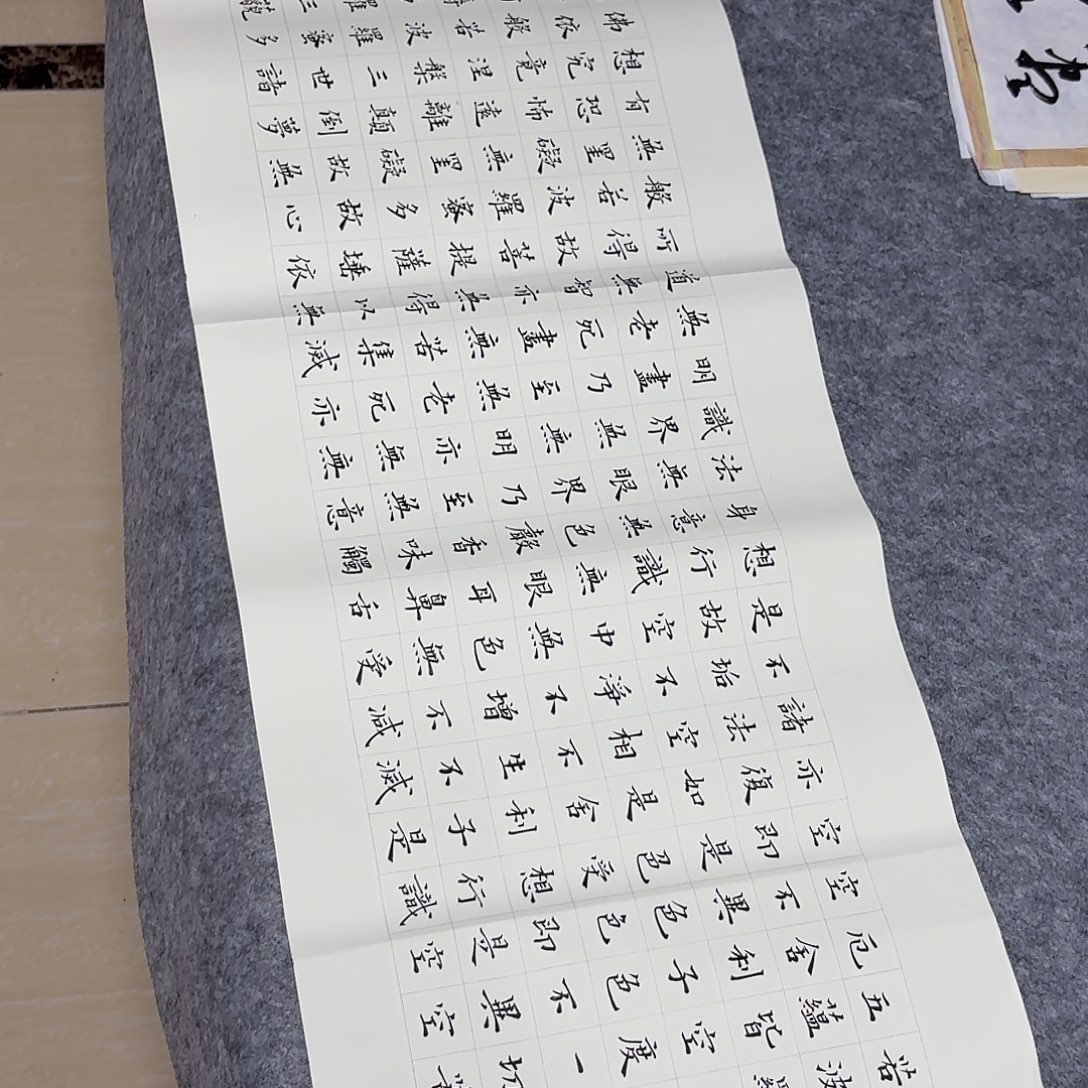 若波
五蘊皆空度一切
厄舍利子色不異空
空不異色色即是空
空即是色受想行識
亦復如是舍利子是
諸法空相不生不滅
不垢不淨不增不減
是故空中無色無受
想行識無眼耳鼻舌
身意無色聲香味觸
法無眼界乃至無意
識界無無明亦無無
明盡乃至無老死亦
無老死盡無苦集滅
道無智亦無得以無
所得故菩提薩埵依
般若波羅蜜多故心
無罣礙無罣礙故無
有恐怖遠離顛倒夢
想究竟涅槃三世諸
佛依般若波羅蜜多
羅三藐